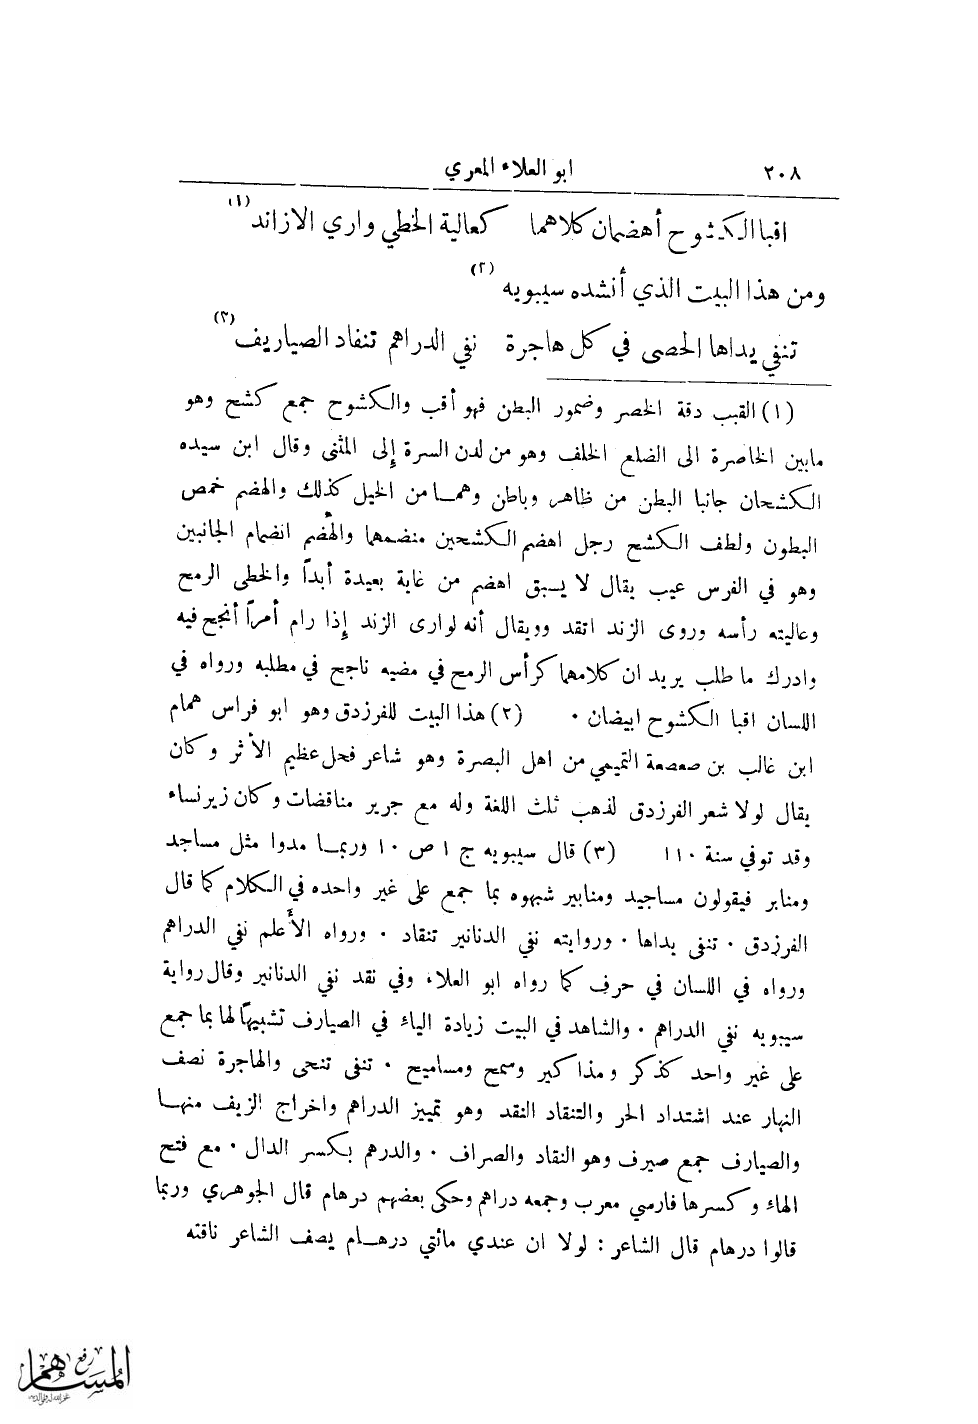 ٢٠٨ ابو العلاء المعري
اقبا الكشوح أهضمان كلاهما كعالية الخطي واري الازاند (١)
ومن هذا البيت الذي أنشده سيبويه (٢)
تنفي يداها الحصى في كل هاجرة نفي الدراهم تنقاد الصياريف (٣)
(١) القبب دقة الخصر وضمور البطن فهو أقب والكشوح جمع كشح وهو
مابين الخاصرة الى الضلع الخلف وهو من لدن السرة إلى المثنى وقال ابن سيده
الكشحان جانبا البطن من ظاهر وباطن وهما من الخيل كذلك والهضم خمص
البطون ولطف الكشح رجل اهضم الكشحين منضمهما والهُضم انضمام الجانبين
وهو في الفرس عيب يقال لا يسبق اهضم من غاية بعيدة أبداً والخطى الرمح
وعاليته رأسه وروى الزند اتقد وويقال أنه لوارى الزند إذا رام أمراً أنجح فيه
وادرك ما طلب يريد ان كلامهما كرأس الرمح في مضيه ناجح في مطلبه ورواه في
اللسان اقبا الكشوح ابيضان ٠ (٢) هذا البيت للفرزدق وهو ابو فراس همام
ابن غالب بن صعصعة التميمي من اهل البصرة وهو شاعر فحل عظيم الأثر وكان
يقال لولا شعر الفرزدق لذهب ثلث اللغة وله مع جرير مناقضات وكان زير نساء
وقد توفي سنة ١١٠ (٣) قال سيبويه ج ١ ص ١٠ وربما مدوا مثل مساجد
ومنابر فيقولون مساجيد ومنابير شبهوه بما جمع على غير واحده في الكلام كما قال
الفرزدق ٠ تنفى يداها ٠ وروايته نفي الدنانير تنقاد ٠ ورواه الأعلم نفي الدراهم
ورواه في اللسان في حرف كما رواه ابو العلاء وفي نقد نفي الدنانير وقال رواية
سيبويه نفي الدراهم ٠ والشاهد في البيت زيادة الياء في الصيارف تشبيهاً لها بما جمع
على غير واحد كذكر ومذاكير وسمح ومساميح ٠ تنفى تنحى والهاجرة نصف
النهار عند اشتداد الحر والتنقاد النقد وهو تمييز الدراهم واخراج الزيف منها
والصيارف جمع صيرف وهو النقاد والصراف ٠ والدرهم بكسر الدال ٠ مع فتح
الهاء وكسرها فارسي معرب وجمعه دراهم وحكى بعضهم درهام قال الجوهري وربما
قالوا درهام قال الشاعر : لولا ان عندي مائتي درهام يصف الشاعر ناقته
رفع المساهم